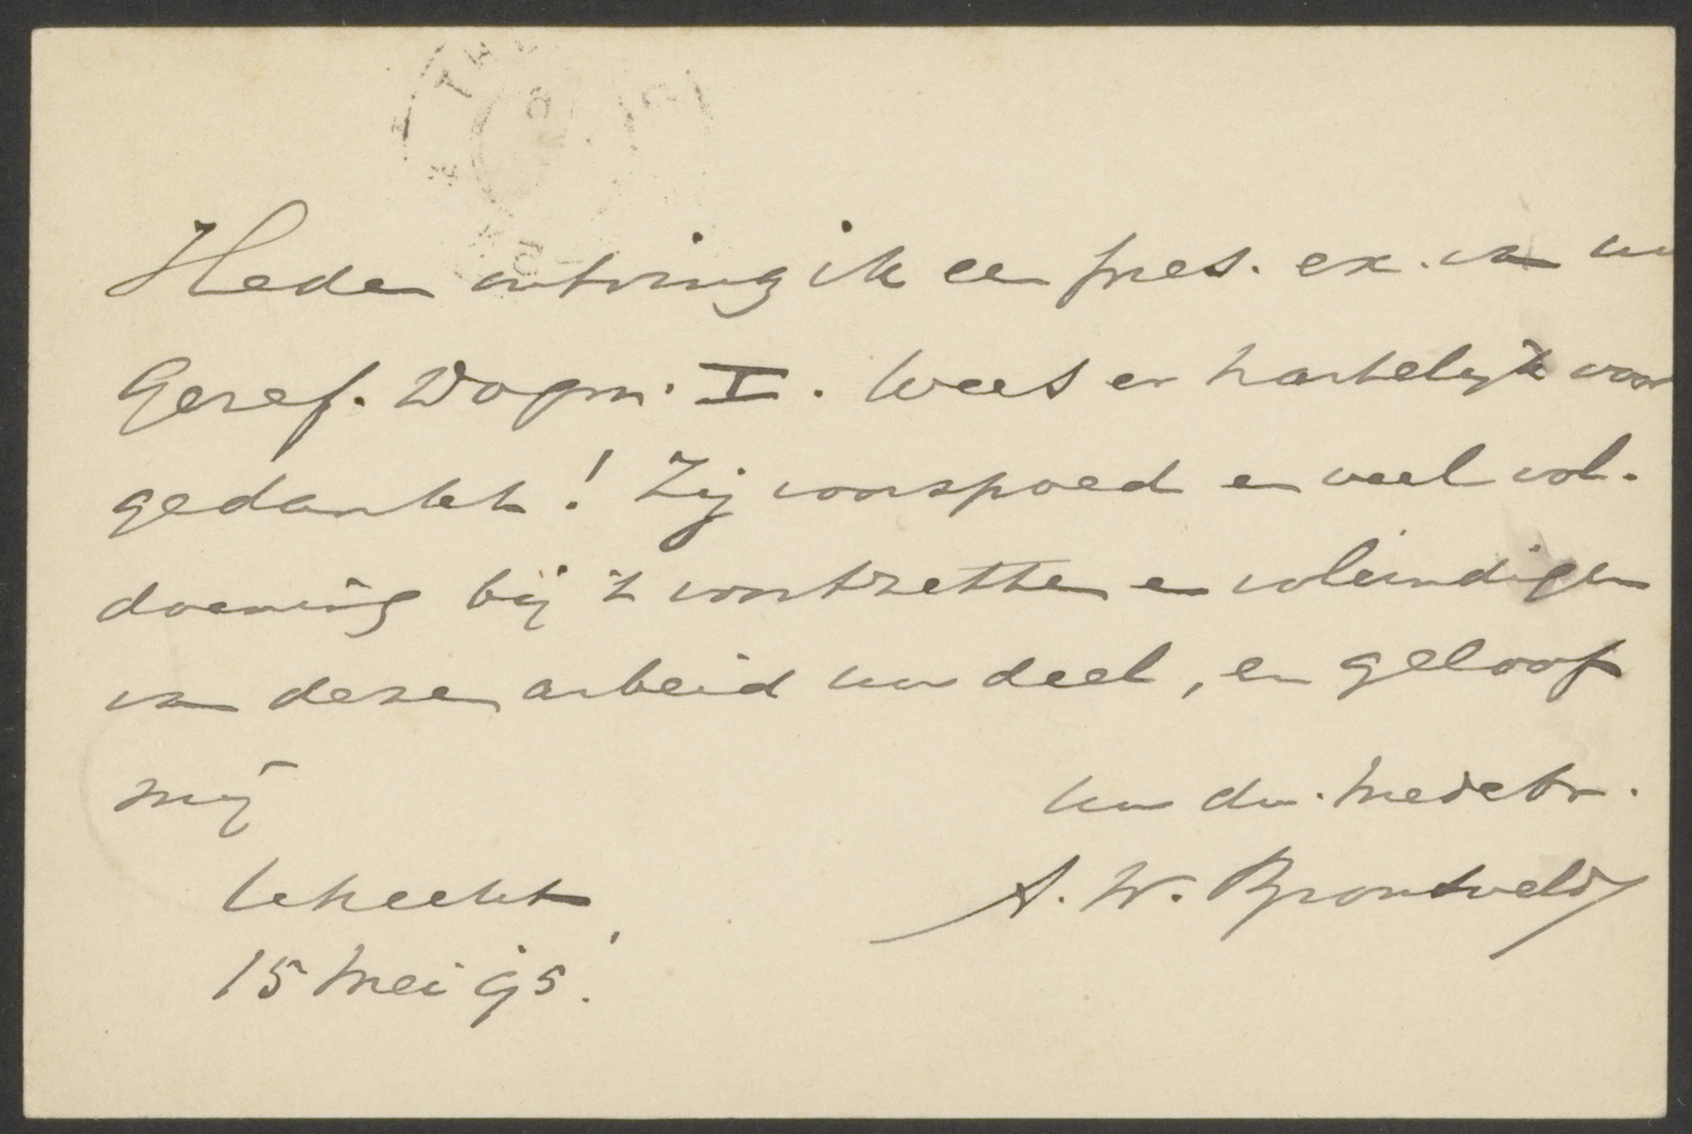 Heden ontving ik een pres. ex. van uw
Geref. Dogm. I. Wees er hartelijk voor
gedankt! Zij voorspoed en veel vol-
doening bij 't voortzetten en voleindigen
van dezen arbeid uw deel, en geloof
mij
uw dw. medebr.
A. W. Bronsveld
Utrecht,
15 Mei 95.